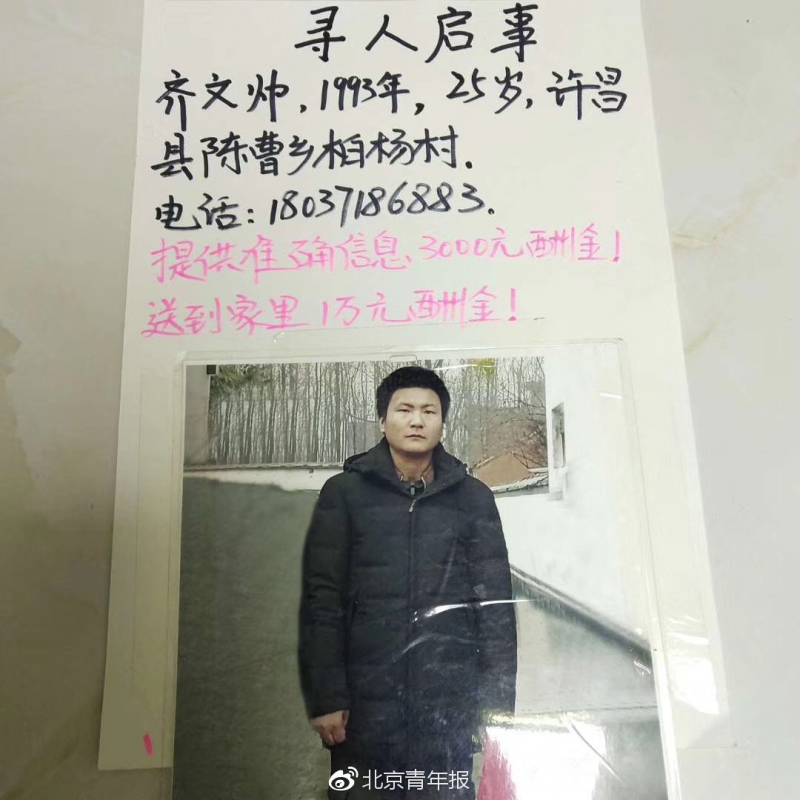 寻人启事
齐文帅，1993年，25岁，许昌
县陈曹乡柏杨村．
电话：18037186883．
提供准确信息、3000元酬金！
送到家里1万元酬金！
北京青年报